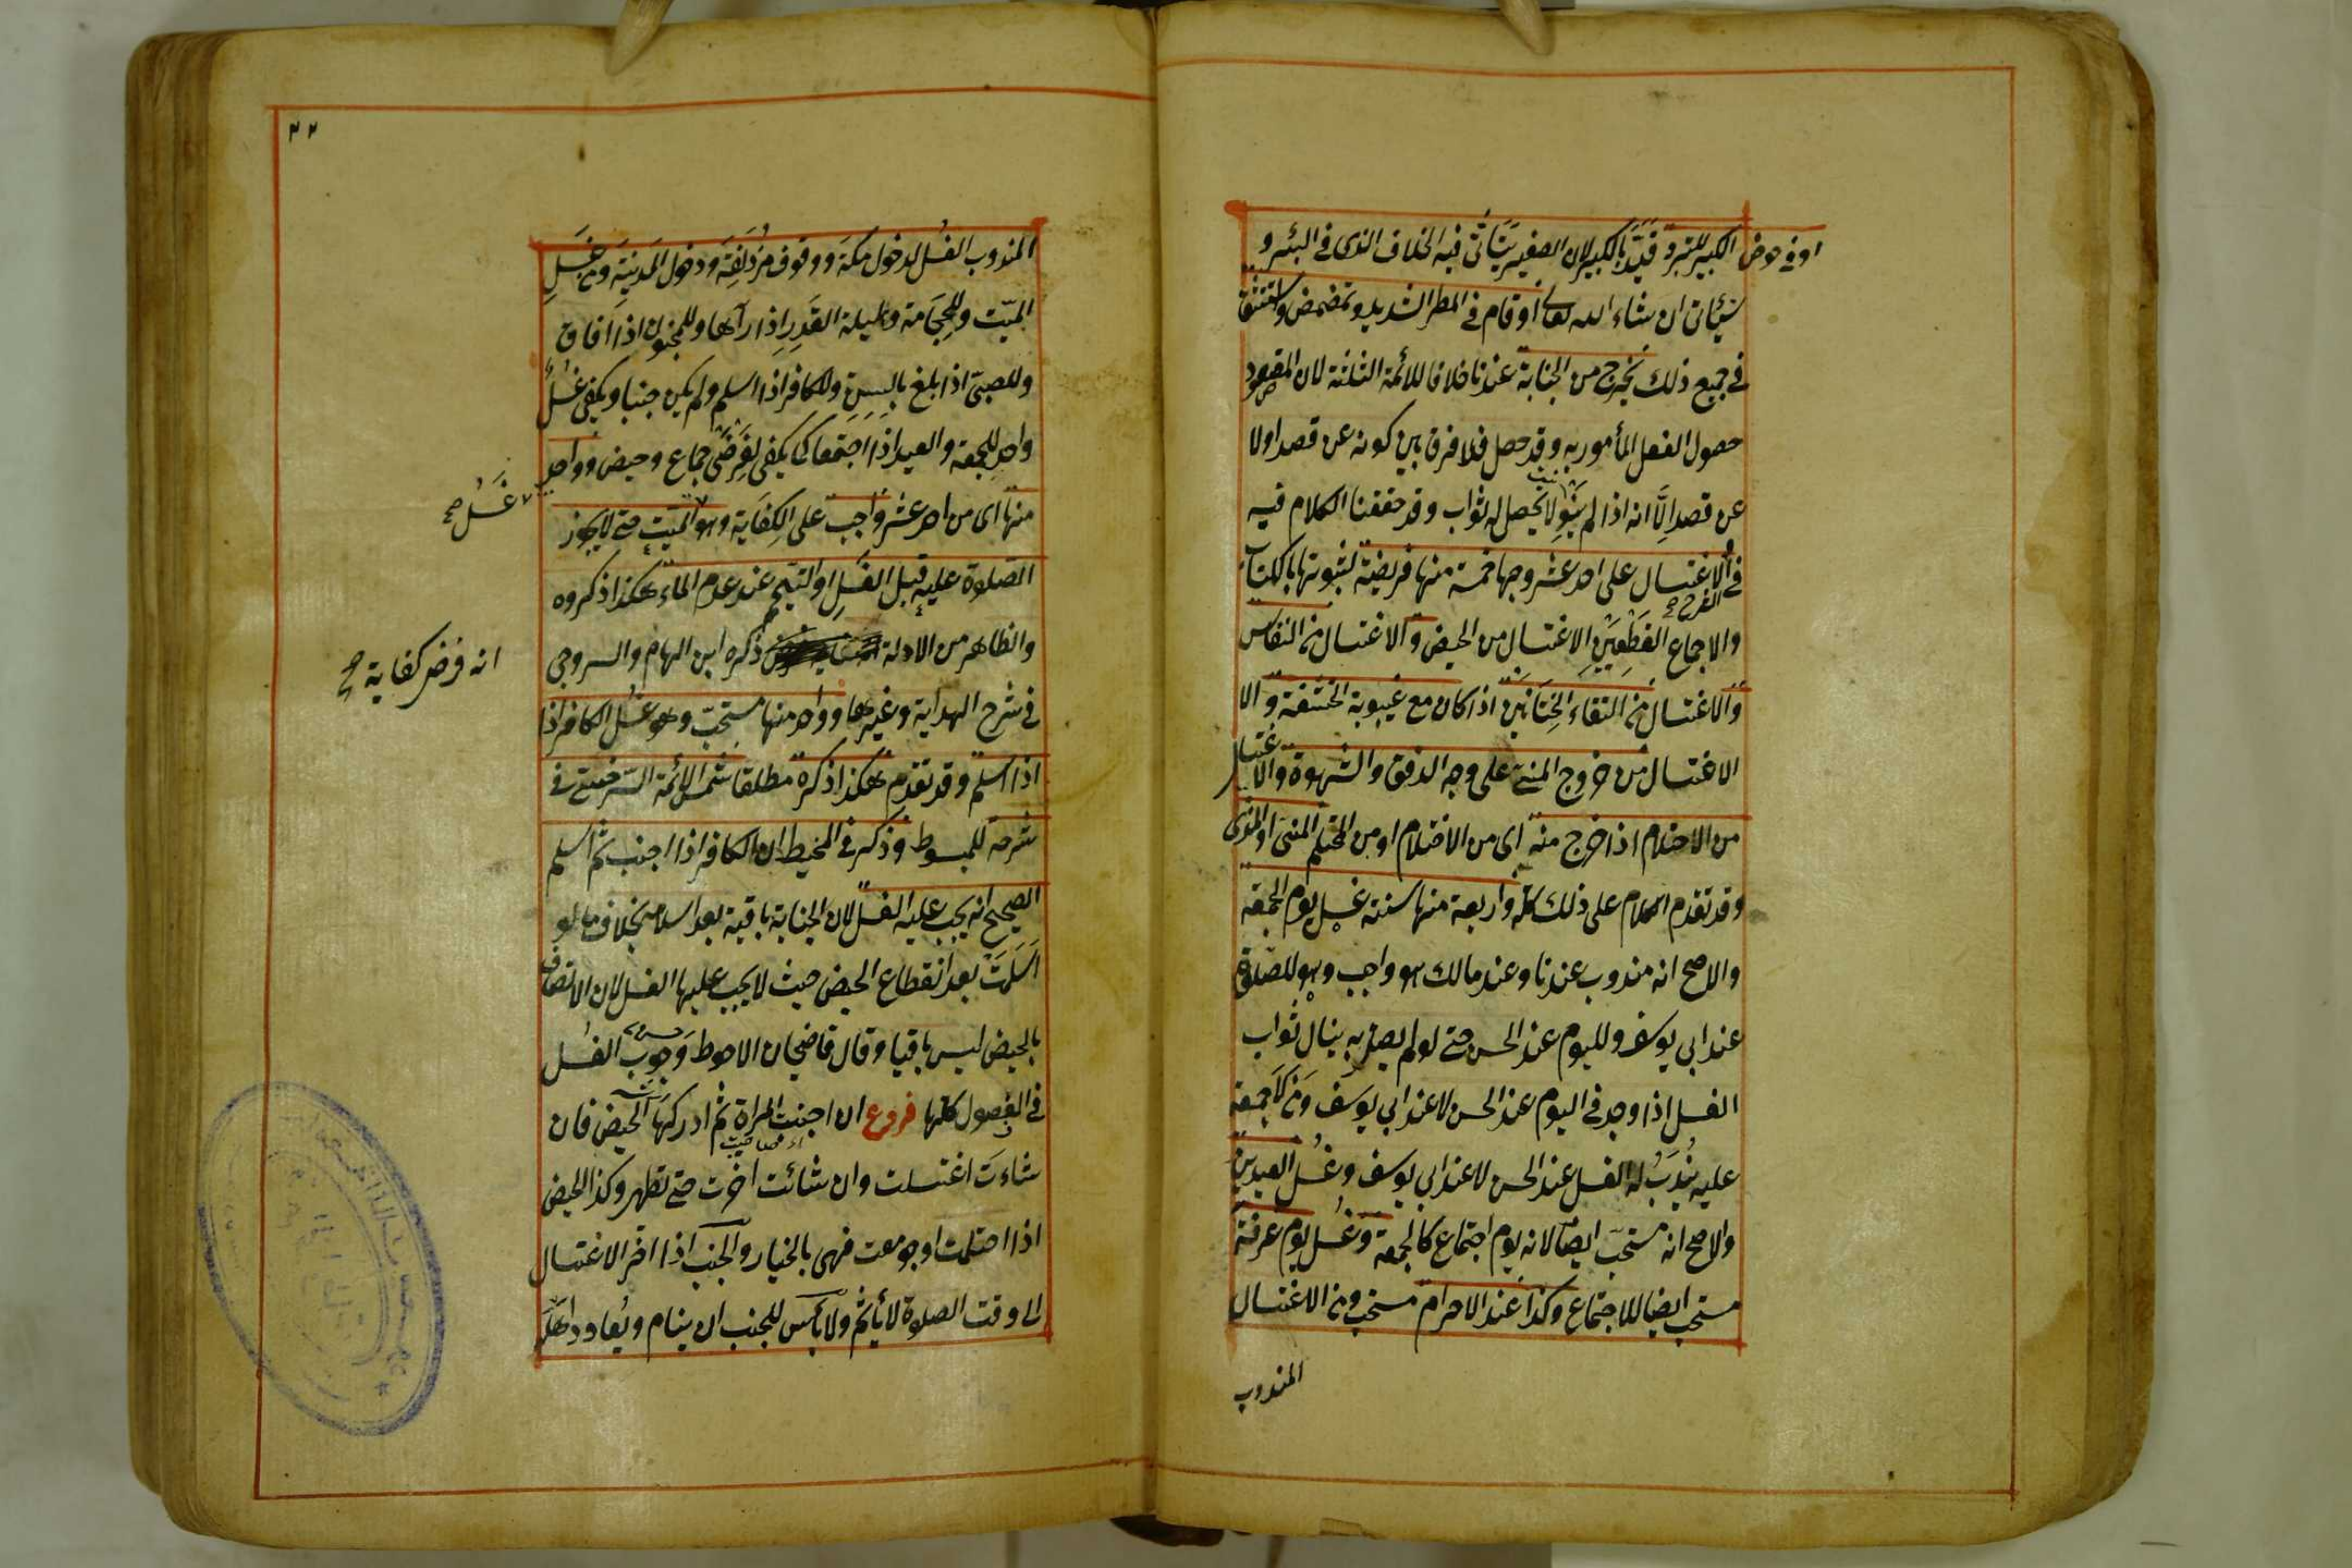 او في حوض الكبير للتبرد قيّد بالكبير لان الصغير يتأتّى فيه الخلاف الذى في البئر و
سيأتى ان شاء الله تعالى او قام في المطر الشديد وتمضمض واستنشق
في جميع ذلك يخرج من الجنابة عندنا خلافا للائمة الثلثة لان المقصود
حصول الفعل المأمور به وقد حصل فلا فرق بين كونه عن قصد اولا
عن قصد الّا انه اذا لم ينو لا يحصل له ثواب وقد حققنا الكلام فيه
في الاغتسال على احد عشر وجها خمسة منها فريضة لثبوتها بالكتاب
والاجماع القطعيين الاغتسال من الحيض والاغتسال من النفاس
والاغتسال من التقاء الختانين اذا كان مع غيبوبة الحشفة والا
الاغتسال من خروج المنى على وجه الدفق والشهوة والاغتسال
من الاحتلام اذا خرج منه اى من الاحتلام او من المحتلم المنى او المذى
وقد تقدم الكلام على ذلك كله واربعة منها سنة غسل يوم الجمعة
والاصح انه مندوب عندنا وعند مالك هو واجب وهو للصلوة
عند ابي يوسف ولليوم عند الحسن حتى لو لم يصل به ينال ثواب
الغسل اذا وجد في اليوم عند الحسن لا عند ابي يوسف ومن لا جمعة
عليه يندب له الغسل عند الحسن لا عند ابي يوسف وغسل العيدين
والاصح انه مستحب ايضا لانه يوم اجتماع كالجمعة وغسل يوم عرفة
مستحب ايضا للاجتماع وكذا عند الاحرام مستحب ومن الاغتسال
المندوب
٢٢
المندوب الغسل لدخول مكة ووقوف مزدلفة ودخول المدينة ومن غسل
الميّت وللحجامة وليلة القدر اذا رآها وللمجنون اذا افاق
وللصبىّ اذا بلغ بالسن وللكافر اذا اسلم ولم يكن جنبا ويكفى غسل
واحد للجمعة والعيد اذا اجتمعا كما يكفى لفرضى جماع وحيض وواحد
منها اى من احد عشر واجب على الكفاية وهو الميّت حتى لا يجوز
غسل صح
الصلوة عليه قبل الغسل او التيمم عند عدم الماء هكذا ذكروه
والظاهر من الادلة ذكره ابن الهمام والسروجى
انه فرض كفاية صح
في شرح الهداية وغيرهما وواحد منها مستحبّ وهو غسل الكافر اذا
اذا اسلم وقد تقدم هكذا ذكره مطلقا شمس الائمة السرخسى في
شرحه للمبسوط وذكر في المحيط ان الكافر اذا اجنب ثم اسلم
الصحيح انه يجب عليه الغسل لان الجنابة باقية بعد اسلامه بخلاف ما لو
اسلمت بعد انقطاع الحيض حيث لا يجب عليها الغسل لان الاتصاف
بالحيض ليس باقيا وقال قاضيخان الاحوط وجوب الغسل
في الفصول كلها فروع ان اجنبت المراة ثم ادركها الحيض فان
شاءت اغتسلت وان شائت اخرت حتى تطهر وكذا الحيض
اذا احتلمت او جومعت فهى بالخيار والجنب اذا اخر الاغتسال
الى وقت الصلوة لا يأثم ولا بأس للجنب ان ينام ويعاود اهله